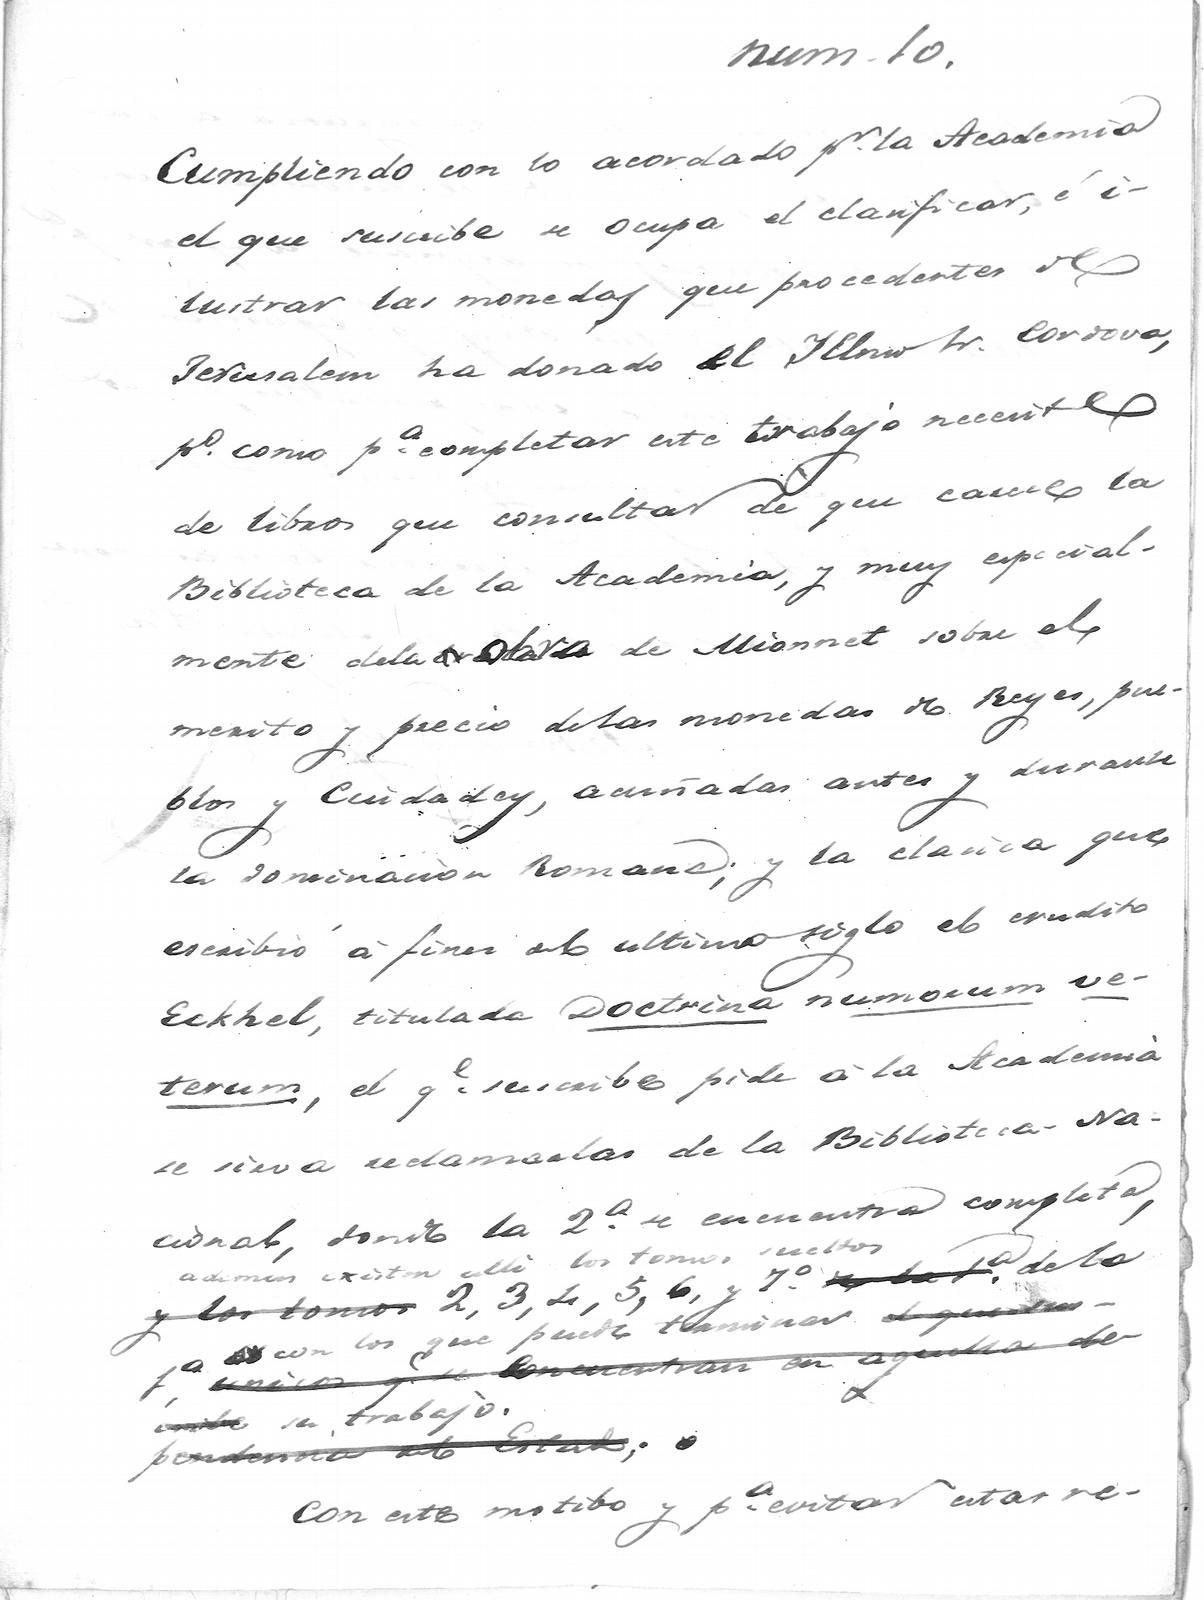 num. 10.
Cumpliendo con lo acordado pr. la Academia
el que suscribe se ocupa el clasificar, é i-
lustrar las monedas que procedentes de
Jerusalem ha donado el Yllmo Sr. Cordova,
po. como pa. completar este trabajo necesite
de libros que consultar de que carece la
Biblioteca de la Academia, y muy especial-
mente dela obra de Mionnet sobre el
merito y precio delas monedas de Reyes, pue-
blos y Ciudades, acuñadas antes y durante
la dominacion Romana; y la clasica que
escribió á fines del ultimo siglo el erudito
Eckhel, titulada Doctrina numorum ve-
terum, el qe. suscribe pide á la Academia
se sirva reclamarlas de la Biblioteca Na-
cional, donde la 2a. se encuentra completa,
ademas existen alli los tomos sueltos
y los tomos 2, 3, 4, 5, 6, y 7o de la 1a. de la
1a. con los que puede terminar
unicos qe. se encuentran en aquella de
su trabajo.
pendencia del Estado;
Con este motibo y pa. evitar estas re-